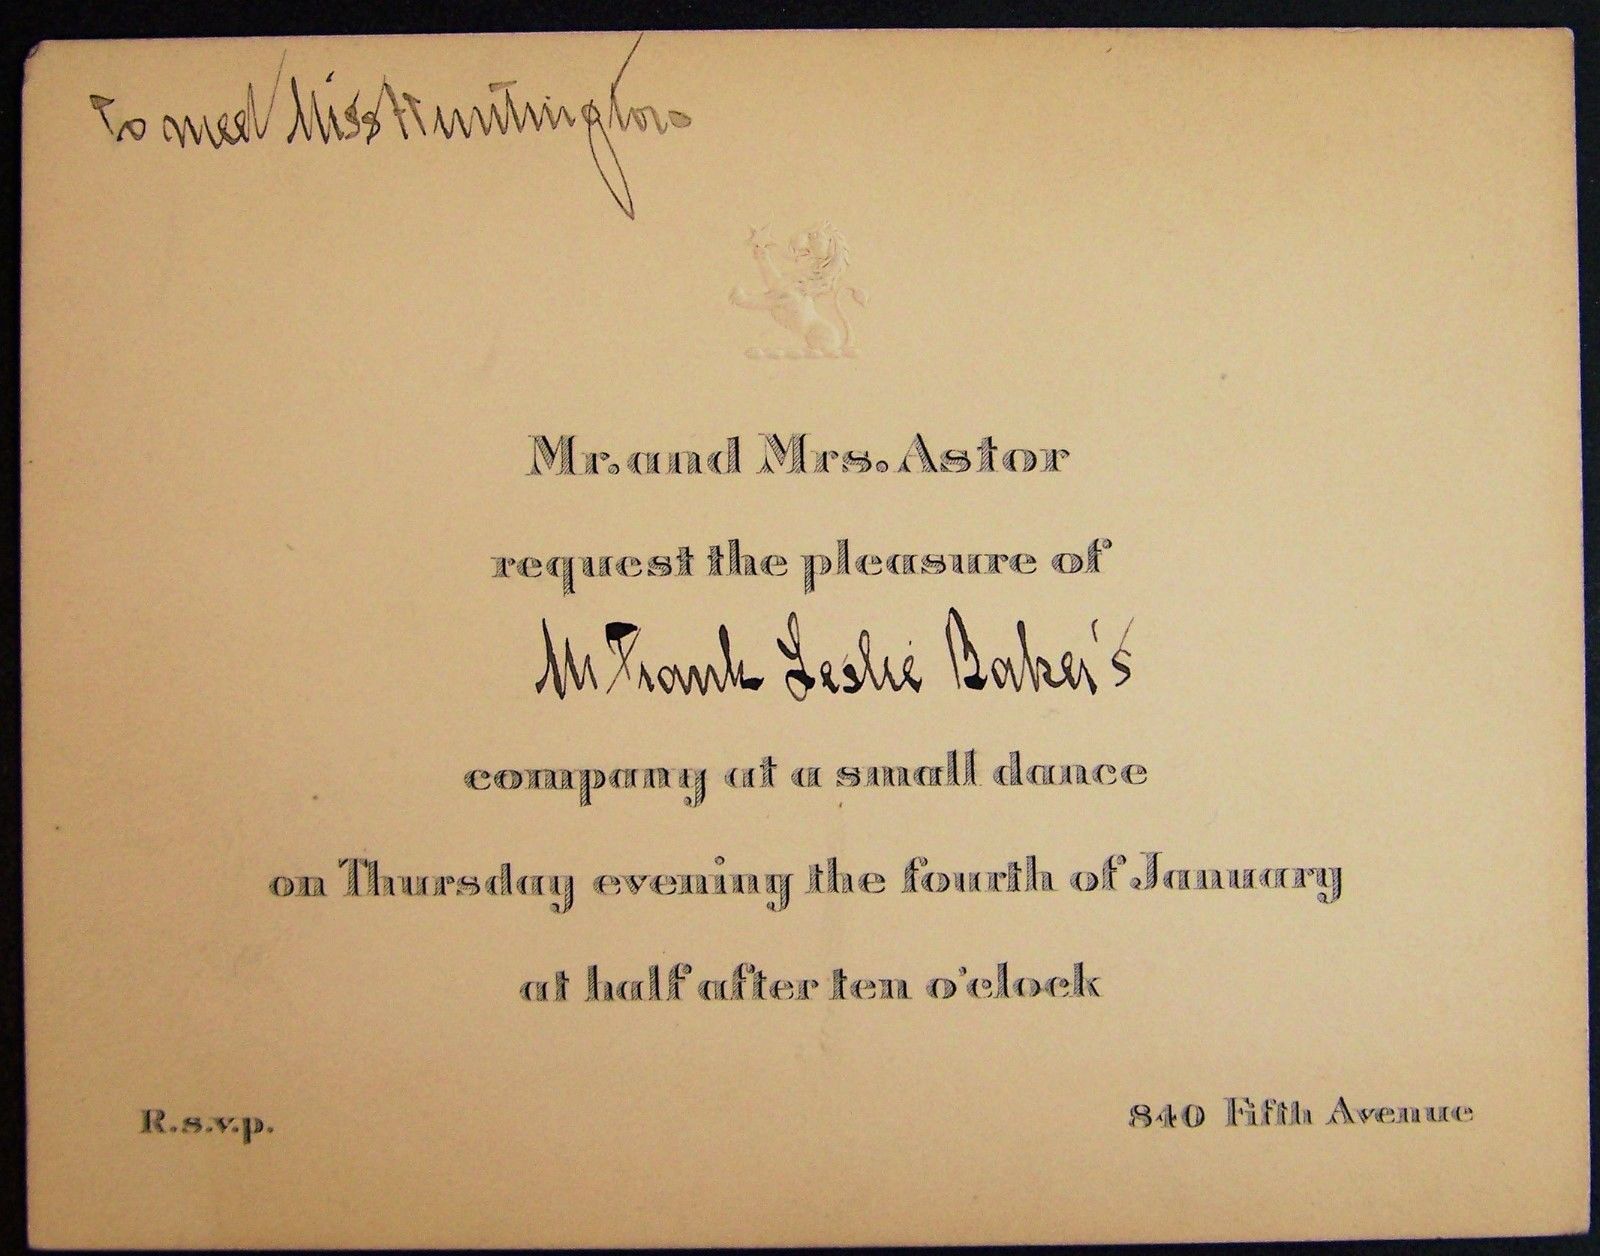 To meet Miss Huntington
Mr. and Mrs. Astor
request the pleasure of
Mr Frank Leslie Baker's
company at a small dance
on Thursday evening the fourth of January
at half after ten o'clock
R.s.v.p.
840 Fifth Avenue